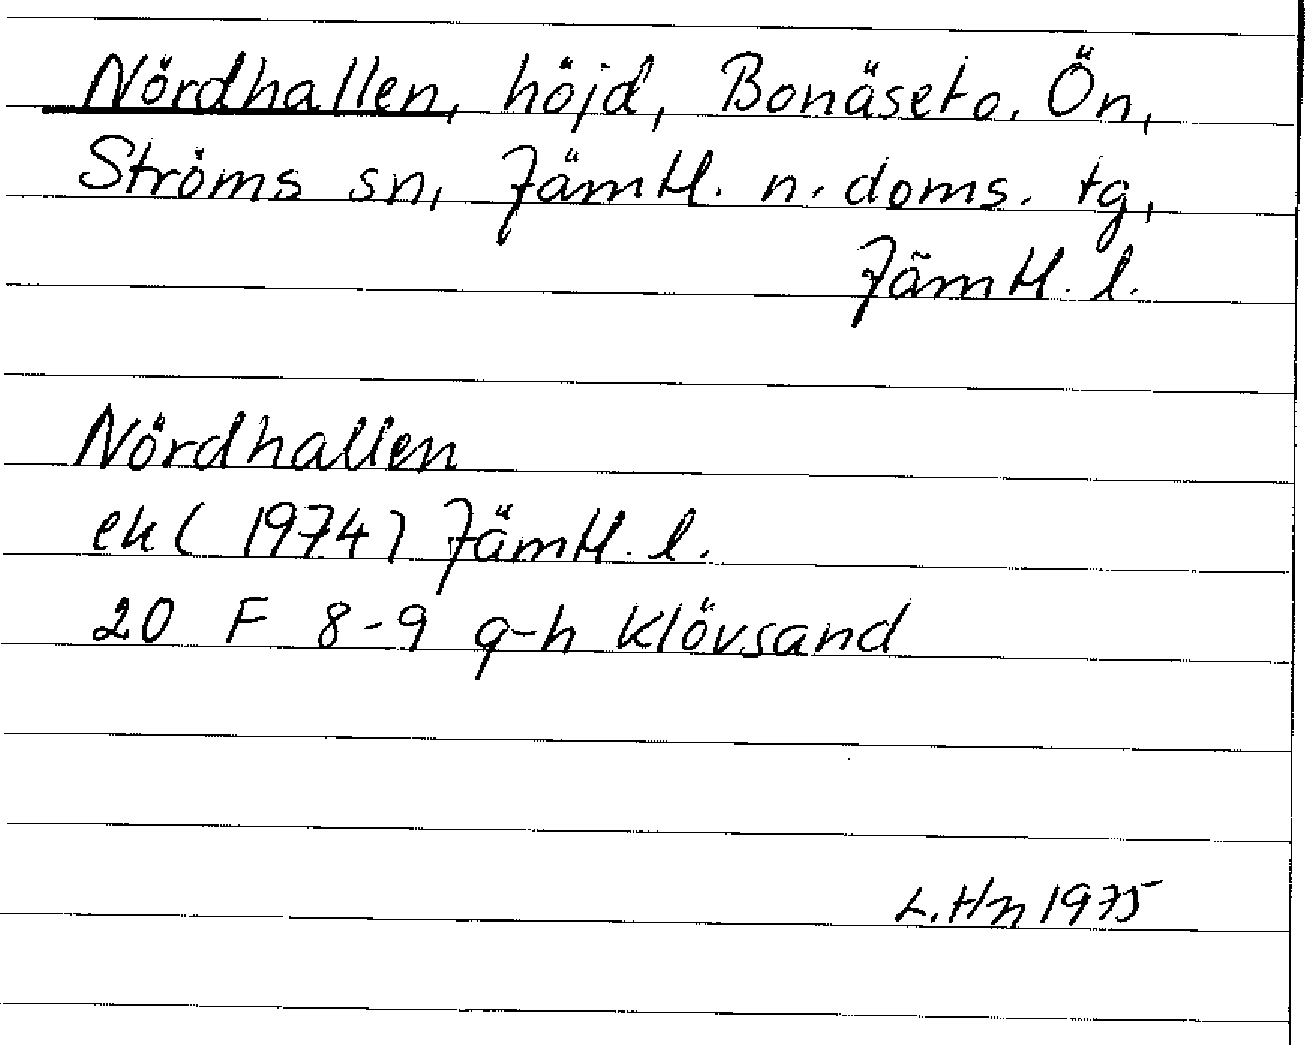 Nördhallen, höjd, Bonäset o. Ön,
Ströms sn, Jämtl. n. doms. tg,
Jämtl. l.
Nördhallen
ek (1974) Jämtl. l.
20 F 8-9 g-h Klövsand
L. Hn 1975